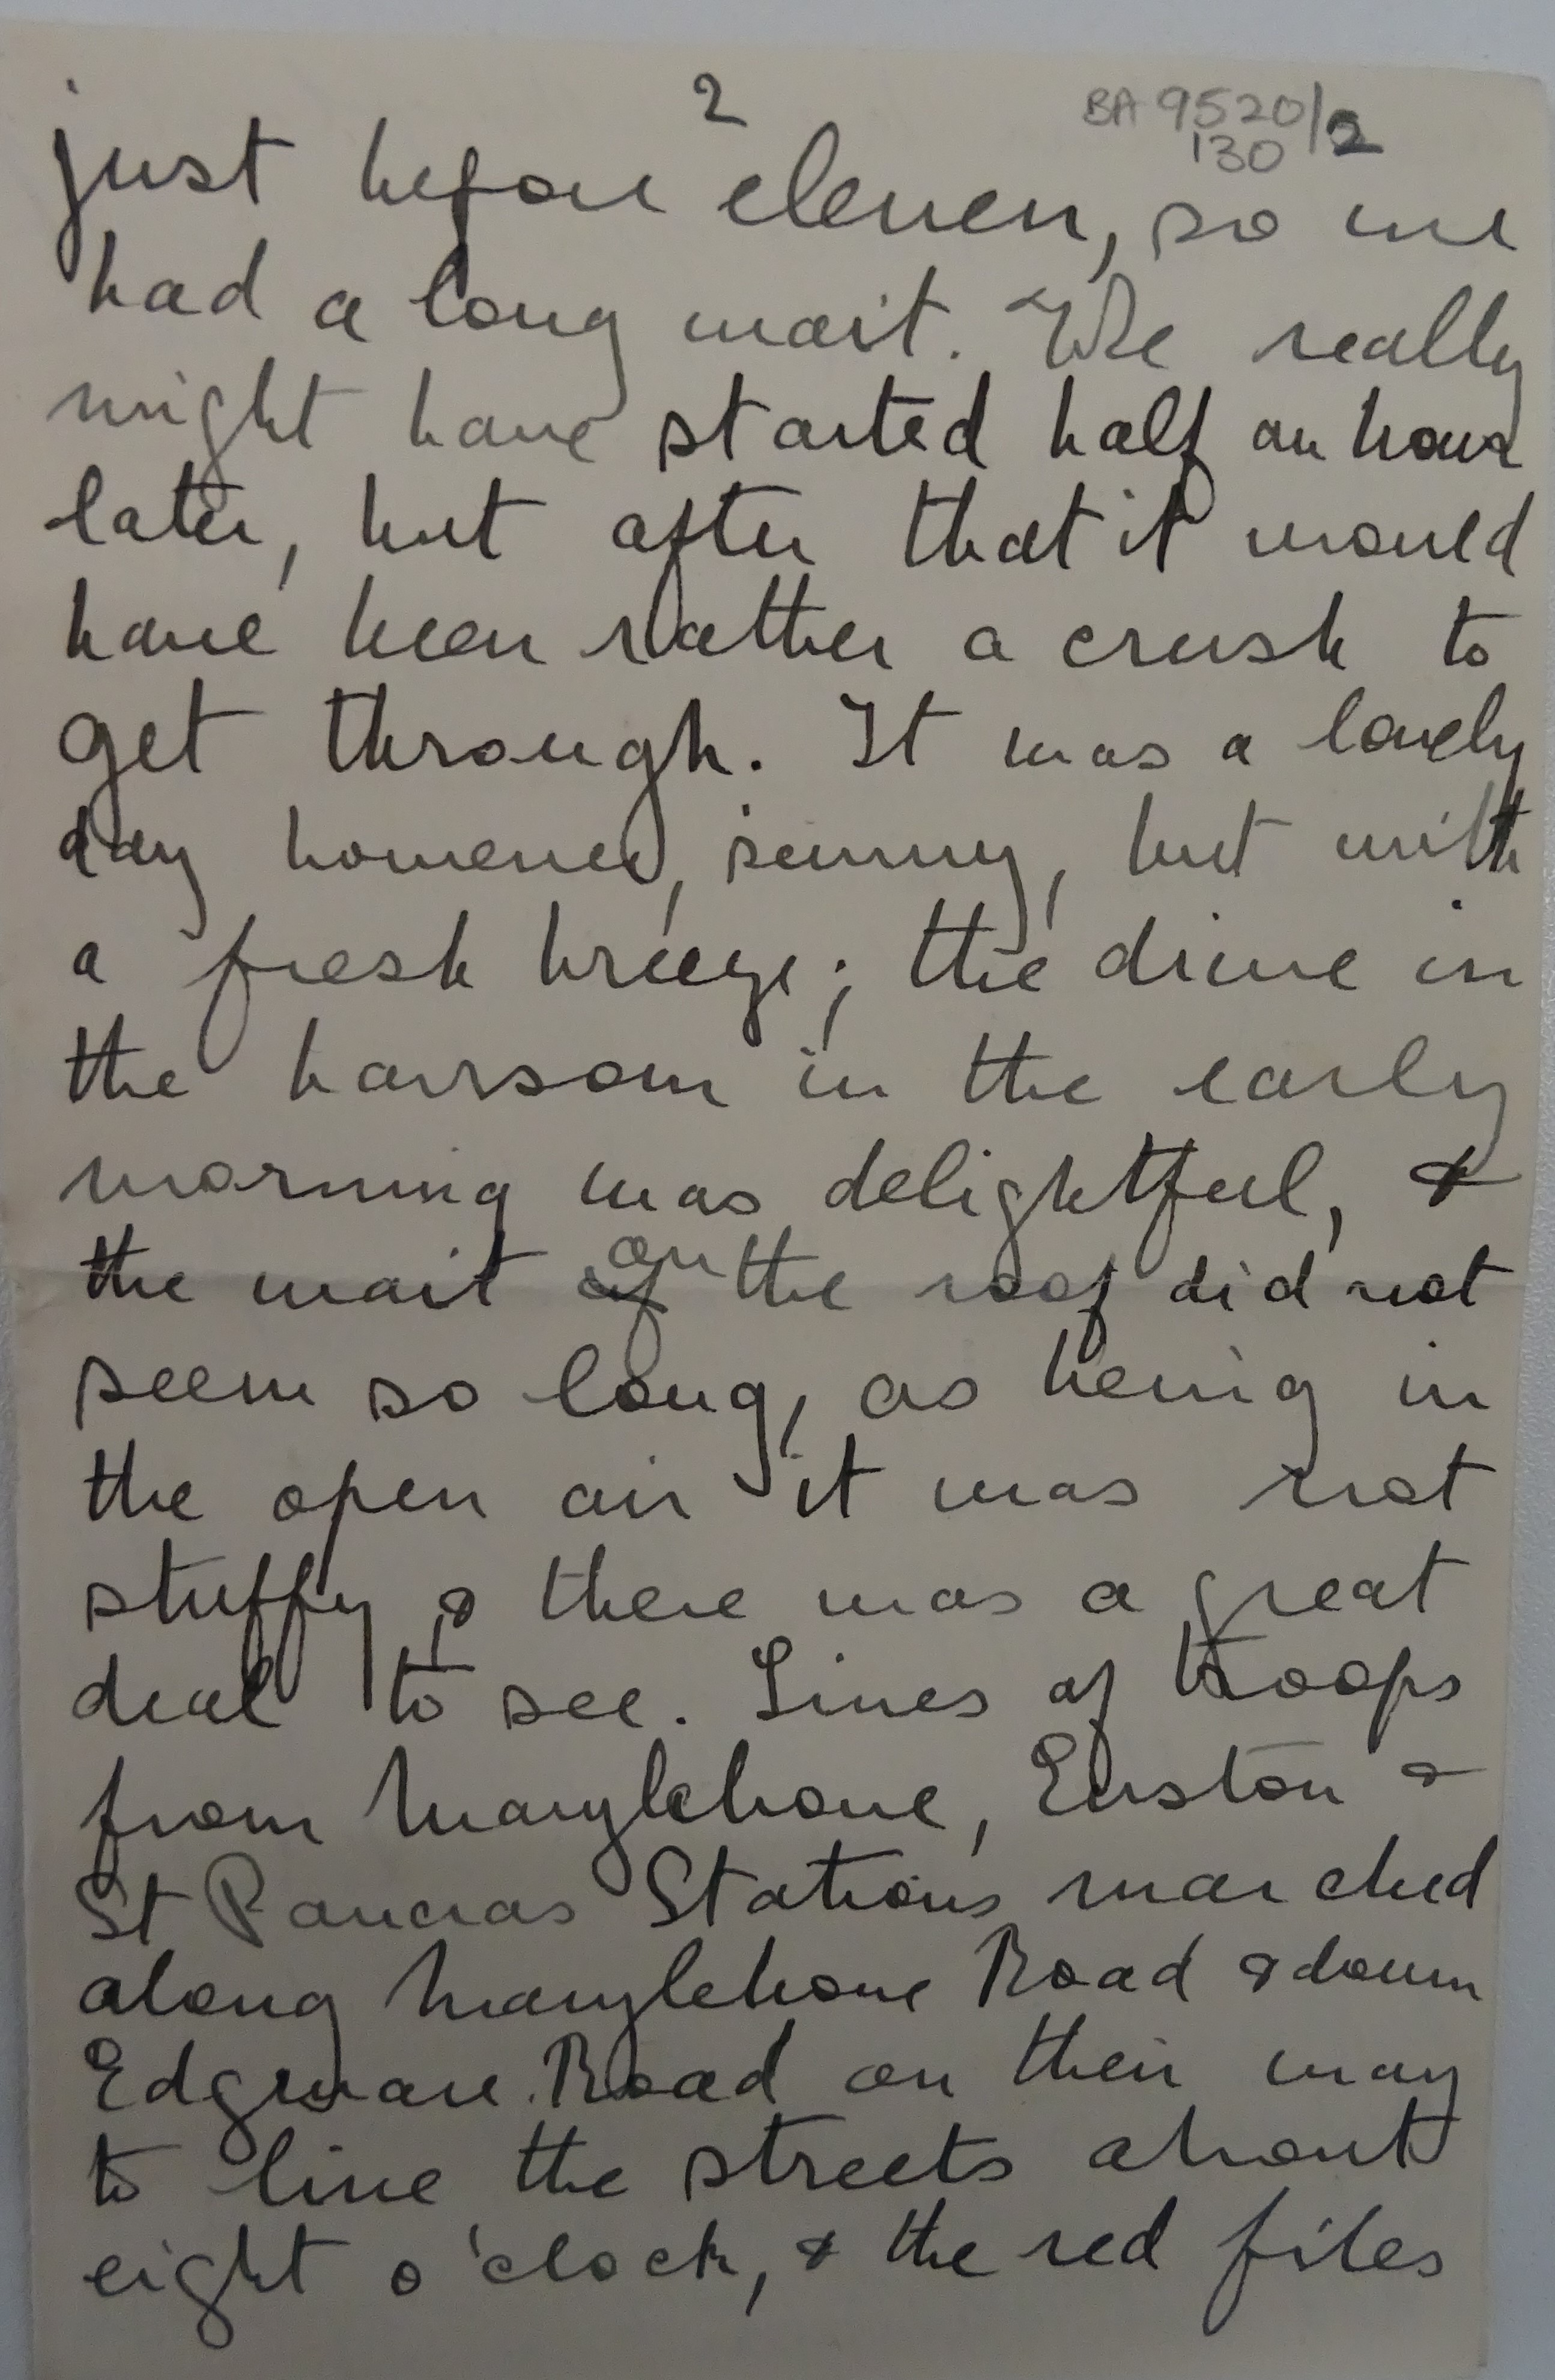 2
BA 9520/2
130
just before eleven, so we
had a long wait. We really
might have started half an hour
later, but after that it would
have been rather a crush to
get through. It was a lovely
day however, sunny, but with
a fresh breeze; the drive in
the hansom in the early
morning was delightful, &
on
the wait of the roof did not
seem so long, as being in
the open air it was not
stuffy & there was a great
deal to see. Lines of troops
from Marylebone, Euston &
St Pancras Stations marched
along Marylebone Road & down
Edgware Road on their way
to line the streets about
eight o'clock, & the red files